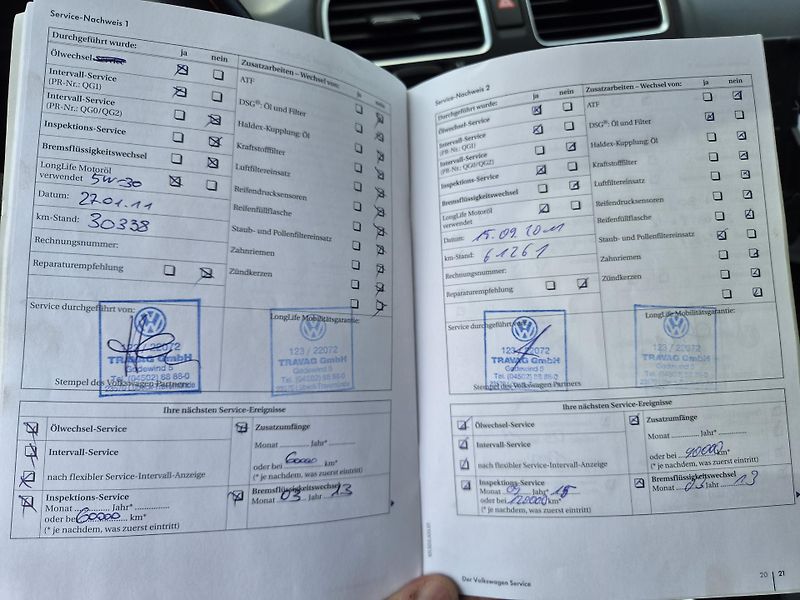 Service-Nachweis 1
Durchgeführt wurde: ja nein
Ölwechsel
Intervall-Service
(PR-Nr.: QG1)
Intervall-Service
(PR-Nr.: QG0/QG2)
Inspektions-Service
Bremsflüssigkeitswechsel
LongLife Motoröl
verwendet 5W-30
Datum: 27.01.11
km-Stand: 30338
Rechnungsnummer:
Reparaturempfehlung
Zusatzarbeiten – Wechsel von: ja nein
ATF
DSG®: Öl und Filter
Haldex-Kupplung: Öl
Kraftstofffilter
Luftfiltereinsatz
Reifendrucksensoren
Reifenfüllflasche
Staub- und Pollenfiltereinsatz
Zahnriemen
Zündkerzen
Service durchgeführt von:
LongLife Mobilitätsgarantie:
123 / 22072
TRAVAG GmbH
Godewind 5
Tel. (04502) 88 88-0
Stempel des Volkswagen Partners
123 / 22072
TRAVAG GmbH
Godewind 5
Tel. (04502) 88 88-0
Ihre nächsten Service-Ereignisse
Ölwechsel-Service
Intervall-Service
nach flexibler Service-Intervall-Anzeige
Inspektions-Service
Monat Jahr*
oder bei 60000 km*
(* je nachdem, was zuerst eintritt)
Zusatzumfänge
Monat Jahr*
60000
oder bei km*
(* je nachdem, was zuerst eintritt)
Bremsflüssigkeitswechsel
Monat 03 Jahr 13
Service-Nachweis 2
Durchgeführt wurde: ja nein
Ölwechsel-Service
Intervall-Service
(PR-Nr.: QG1)
Intervall-Service
(PR-Nr.: QG0/QG2)
Inspektions-Service
Bremsflüssigkeitswechsel
LongLife Motoröl
verwendet
Datum: 15.09.2011
km-Stand: 61261
Rechnungsnummer:
Reparaturempfehlung
Zusatzarbeiten – Wechsel von: ja nein
ATF
DSG®: Öl und Filter
Haldex-Kupplung: Öl
Kraftstofffilter
Luftfiltereinsatz
Reifendrucksensoren
Reifenfüllflasche
Staub- und Pollenfiltereinsatz
Zahnriemen
Zündkerzen
Service durchgeführt von:
LongLife Mobilitätsgarantie:
123 / 22072
TRAVAG GmbH
Godewind 5
Tel. (04502) 88 88-0
Stempel des Volkswagen Partners
123 / 22072
TRAVAG GmbH
Godewind 5
Tel. (04502) 88 88-0
Ihre nächsten Service-Ereignisse
Ölwechsel-Service
Intervall-Service
nach flexibler Service-Intervall-Anzeige
Inspektions-Service
Monat Jahr* 15
oder bei 120000 km*
(* je nachdem, was zuerst eintritt)
Zusatzumfänge
Monat Jahr*
oder bei 90000 km*
(* je nachdem, was zuerst eintritt)
Bremsflüssigkeitswechsel
Monat 03 Jahr 13
Der Volkswagen Service
20 21